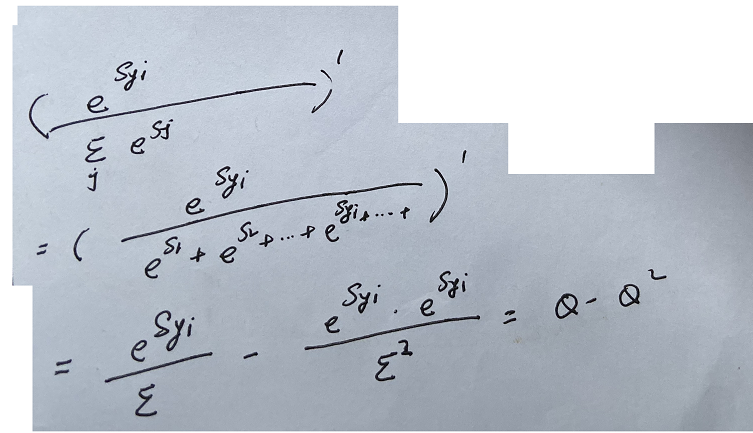 ( e^{S_{yi}} / Σ_j e^{S_j} )'
= ( e^{S_{yi}} / e^{S_1} + e^{S_2} + ... + e^{S_{yi}} + ... + )'
= e^{S_{yi}} / Σ - e^{S_{yi}} · e^{S_{yi}} / Σ^2 = Q - Q^2